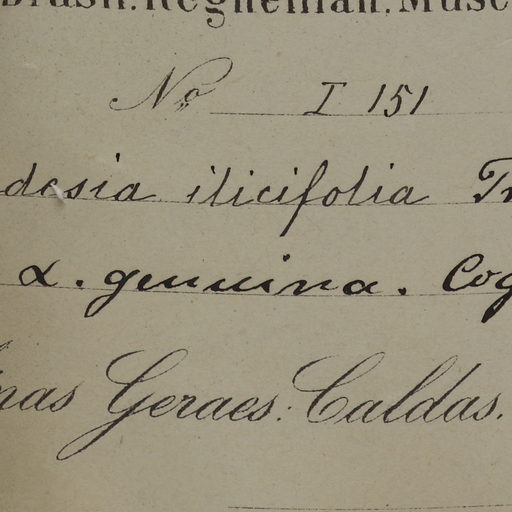 Brasil. Regnellian. Musc
No I 151
desia ilicifolia Tr
α. genuina. Cog
nas Geraes: Caldas.